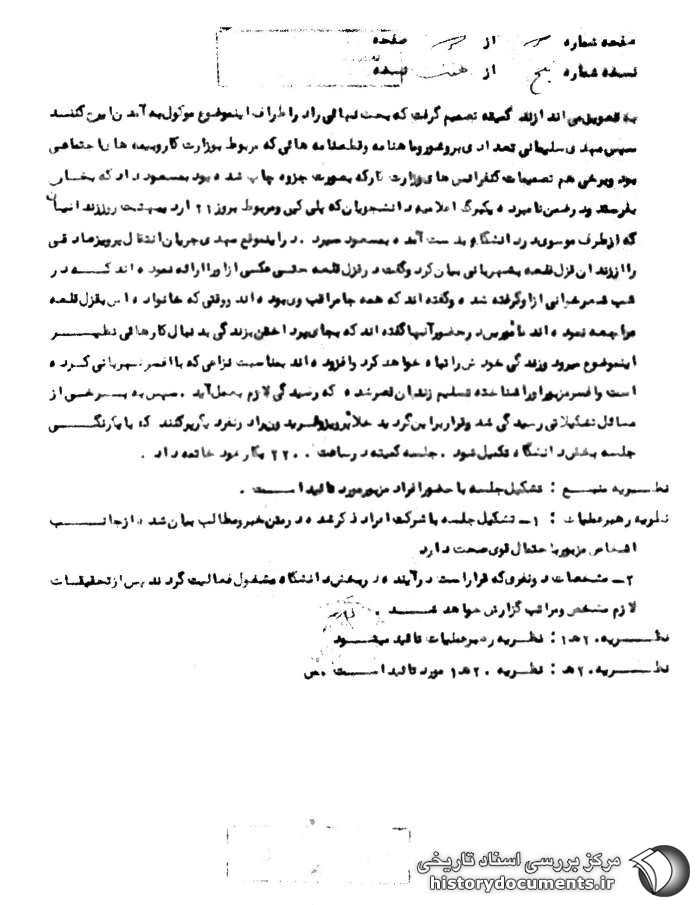 صفحه شماره از صفحه
نسخه شماره پنج از هفت نسخه
به تعویق می اندازند کمیته تصمیم گرفت که بحث نهائی را در اطراف اینموضوع موکول به آمدن ایرج کنند
سپس مهدی سلیمانی تعدادی بروشور و ماهنامه و قطعنامه هائی که مربوط بوزارت کار و بیمه های اجتماعی
بود و برخی هم تصمیمات کنفرانس های وزارت کار که بصورت جزوه چاپ شده بود بمسعود داد که بخسان
بفرستد و در ضمن نامبرده یکبرگ اعلامیه دانشجویان که پلی کپی و مربوط بروز ۲۱ ارد یبهشت روز زندانیان
که از طرف موسوی در دانشگاه بدست آمده بمسعود سپرد . در اینموقع مهدی جریان انتقال پرویز صادقی
را از زندان قزل قلعه بشهربانی بیان کرد و گفت در قزل قلعه حتی عکسی از او را ارائه نموده اند که در
شب شعرخوانی از او گرفته شده و گفته اند که همه جا مراقب وی بوده اند و وقتی که خانواده اش بقزل قلعه
مراجعه نموده اند مأمورین در حضور آنها گفته اند که بجای پرداختن بزندگی بدنبال کارهائی نظیر
اینموضوع میرود و زندگی خودش را تباه خواهد کرد و افزوده اند بمناسبت نزاعی که با افسر شهربانی کرده
است و افسر مزبور او را شناخته تسلیم زندان قصر شده که رسیدگی لازم بعمل آید . سپس به برخی از
مسائل تشکیلاتی رسیدگی شد و قرار بر این گردید خلاء پرویز و فرید ون را دو نفر دیگر پر کنند که با یکرنگی
جلسه بخش دانشگاه تکمیل شود . جلسه کمیته در ساعت ۲۲۰۰ بکار خود خاتمه داد .
نظریه منبع : تشکیل جلسه با حضور افراد مزبور مورد تائید است .
نظریه رهبر عملیات : ۱ـ تشکیل جلسه با شرکت افراد ذکر شده در متن خبر و مطالب بیان شده از جانب
اشخاص مزبور با احتمال قوی صحت دارد
۲ـ مشخصات دو نفری که قرار است در آینده در بخش دانشگاه مشغول فعالیت گردند پس از تحقیقات
لازم مشخص و مراتب گزارش خواهد شد .
نظریه ۲۰ ه‍ ۱ : نظریه رهبر عملیات تائید میشود
نظریه ۲۰ ه‍ : نظریه ۲۰ ه‍ ۱ مورد تائید است . ص
مرکز بررسی اسناد تاریخی
historydocuments.ir